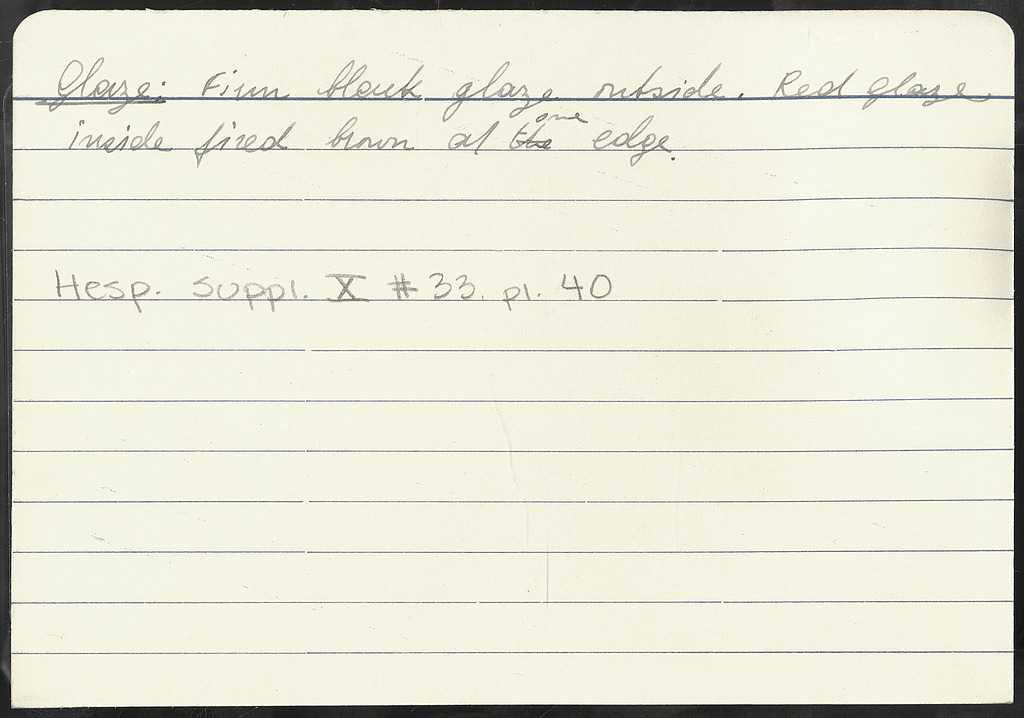 Glaze: Firm black glaze outside. Red glaze
inside fired brown at the one edge.
Hesp. Suppl. X # 33. pl. 40